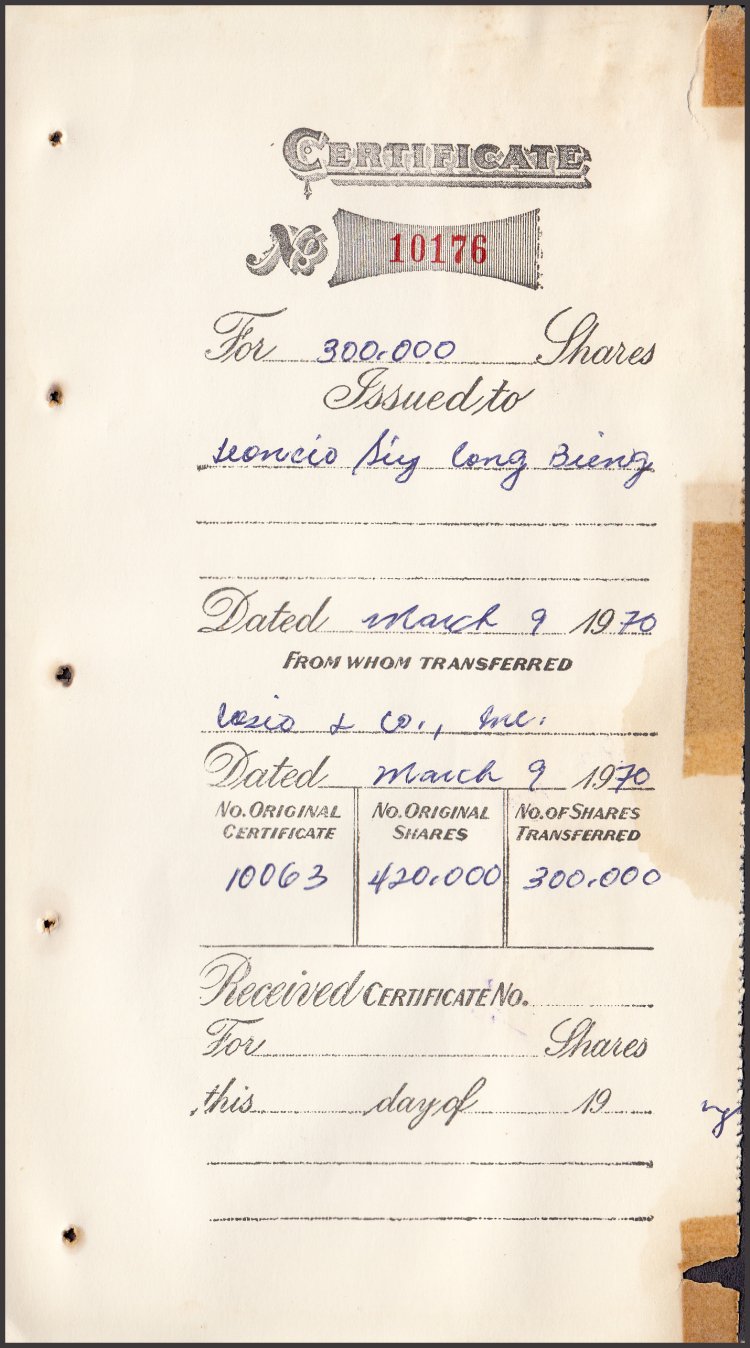 CERTIFICATE
No 10176
For 300,000 Shares
Issued to
Leoncio Siy Cong Bieng
Dated March 9 1970
FROM WHOM TRANSFERRED
& Co., Inc.
Dated March 9 1970
No. ORIGINAL CERTIFICATE
No. ORIGINAL SHARES
No. OF SHARES TRANSFERRED
10063 420,000 300,000
Received CERTIFICATE No.
For Shares
this day of 19